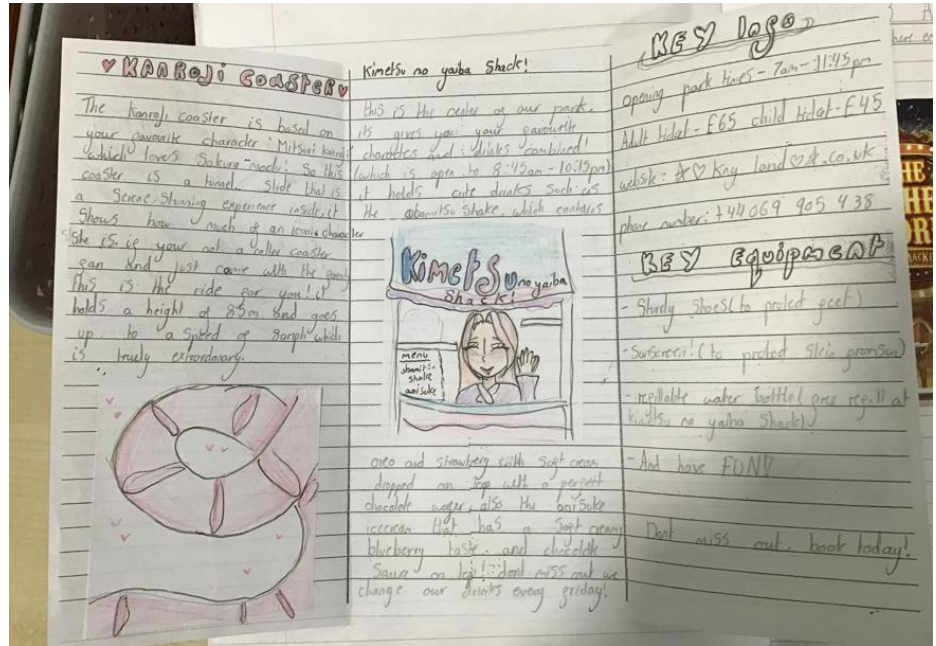 KANROJI COASTER
The Kanroji coaster is based on
your favourite character: Mitsuri Kanroji
which loves Sakura mochi! So this
coaster is a tunnel. Slide that is
a Scene Stunning experience inside, it
Shows how much of an iconic character
She is. if your not a roller coaster
fan and just came with the family
this is the ride for you! it
holds a height of 85m and goes
up to a Speed of 80mph which
is truely extrordonary.
Kimetsu no yaiba Shack!
this is the center of our park.
its gives you your favourite
characters and drinks combined!
(which is open to 8:45am - 10:15pm)
it holds cute drinks such as
the obamitsu shake, which contains
Kimetsu no yaiba
Shack!
menu
obamitsu
shake
anisuke
oreo and strawberg with Soft cream
dropped on top with a perfect
chocolate wafer, also the anisuke
icecream that has a soft creamy
blueberry taste. and chocolate
Sauce on top! dont miss out we
change our drinks every friday!
KEY Info
opening park times - 7am - 11:45pm
Adult ticket - £65 child ticket - £45
website: ☆♡ Kny land ♡☆.co.uk
phone number: +44 069 905 438
KEY Equipment
- Sturdy Shoes (to protect feet)
- Sunscreen! (to protect Skin from sun)
- refillable water bottle (free refill at
kimetsu no yaiba Shack)
- And have FUN!!
Dont miss out, book today!
HE